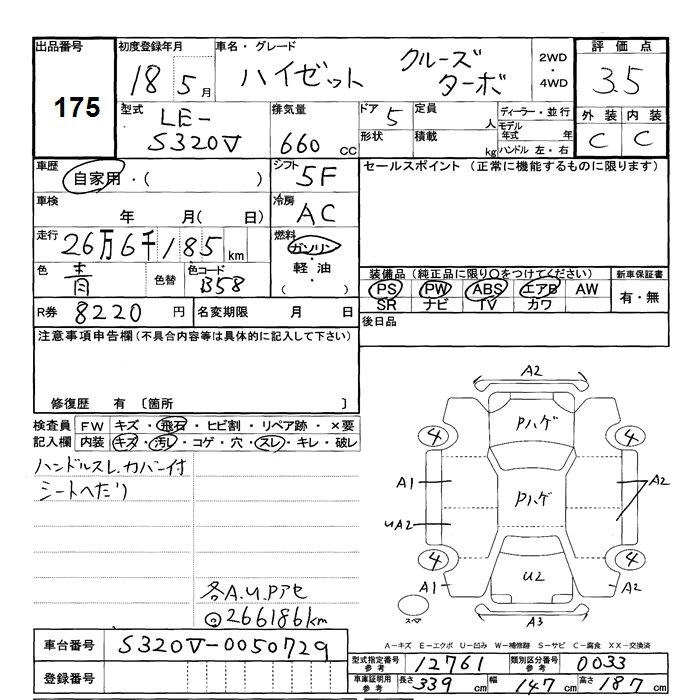 出品番号 初度登録年月 車名・グレード 2WD・4WD 評価点
175 18 5月 ハイゼット クルーズ ターボ 3.5
型式 LE-S320V 排気量 660 cc
ドア 5 定員 人 ディーラー・並行
形状 積載 kg モデル年式 年 ハンドル 左・右
外装 内装
C C
車歴 自家用・( ) シフト 5F
セールスポイント (正常に機能するものに限ります)
車検 年 月( 日) 冷房 AC
走行 26万6千185 km 燃料 ガソリン・軽油・( )
色 青 色替 色コード B58
装備品 (純正品に限り○をつけてください) 新車保証書
PS PW ABS エアB AW 有・無
SR ナビ TV カワ
R券 8220 円 名変期限 月 日
後日品
注意事項申告欄(不具合内容等は具体的に記入して下さい)
修復歴 有 〔箇所 〕
検査員記入欄
FW キズ・飛石・ヒビ割・リペア跡・×要
内装 キズ・汚レ・コゲ・穴・スレ・キレ・破レ
ハンドルスレ、カバー付
シートへたり
各A.U.Pアセ
266186km
A2
Pハゲ
4 4
A1 Pハゲ A2
UA2
4 4
A1 U2 A2
スペア A3
A-キズ E-エクボ U-凹み W-補修跡 S-サビ C-腐食 XX-交換済
車台番号 S320V-0050729
登録番号
型式指定番号参考 12761 類別区分番号参考 0033
車庫証明用参考 長さ 339 cm 幅 147 cm 高さ 187 cm